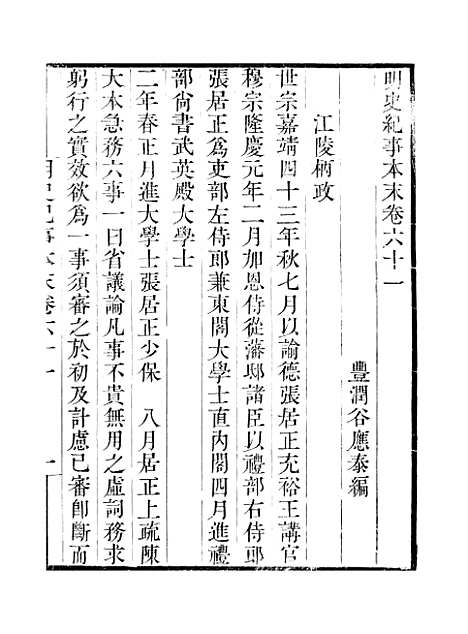 明史紀事本末卷六十一
豐潤谷應泰編
江陵柄政
世宗嘉靖四十三年秋七月以諭德張居正充裕王講官
穆宗隆慶元年二月加恩侍從藩邸諸臣以禮部右侍郎
張居正爲吏部左侍郎兼東閣大學士直內閣四月進禮
部尙書武英殿大學士
二年春正月進大學士張居正少保　八月居正上疏陳
大本急務六事一曰省議論凡事不貴無用之虛詞務求
躬行之實效欲爲一事須審之於初及計慮已審卽斷而
明史紀事本末卷六十一　一